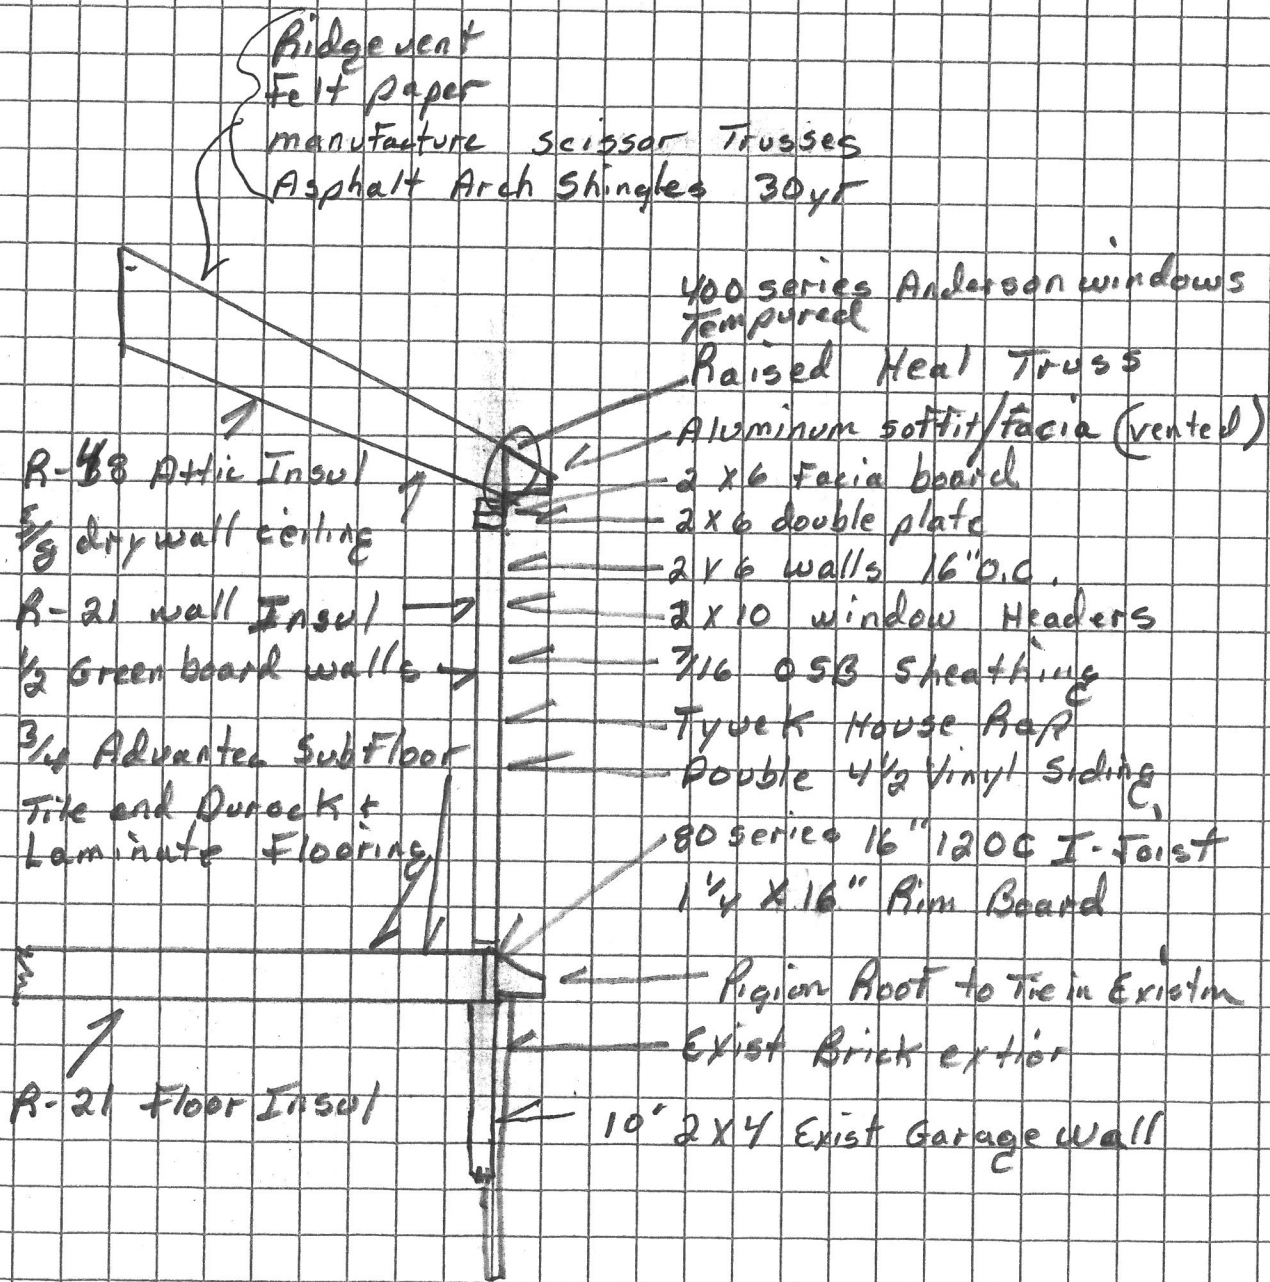 Ridge vent
Felt paper
manufacture scissor Trusses
Asphalt Arch Shingles 30yr
400 series Anderson windows
Tempured
Raised Heal Truss
Aluminum soffit/facia (vented)
2 x 6 Facia board
2 x 6 double plate
2 x 6 walls 16" O.C.
2 x 10 window Headers
7/16 OSB Sheathing
Tyvek House Rap
Double 4 1/2 Vinyl Siding
80 series 16" 12 OC I-Joist
1 1/4 x 16" Rim Board
Pigion Roof to Tie in Existin
Exist Brick extior
10' 2x4 Exist Garage Wall
R-48 Attic Insul
5/8 dry wall ceiling
R-21 wall Insul
1/2 Green board walls
3/4 Advantec SubFloor
Tile and Durock +
Laminate Flooring
R-21 Floor Insul